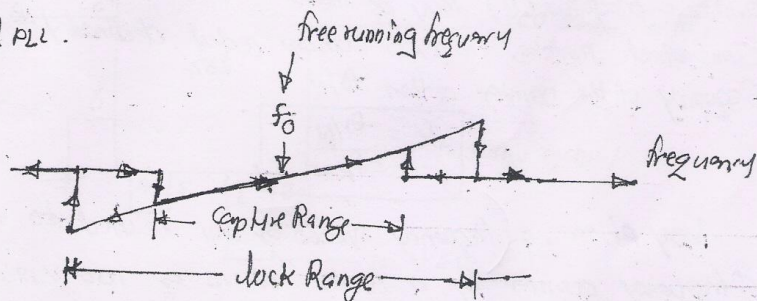 PLL.
free running frequency
fo
frequency
Capture Range
Lock Range